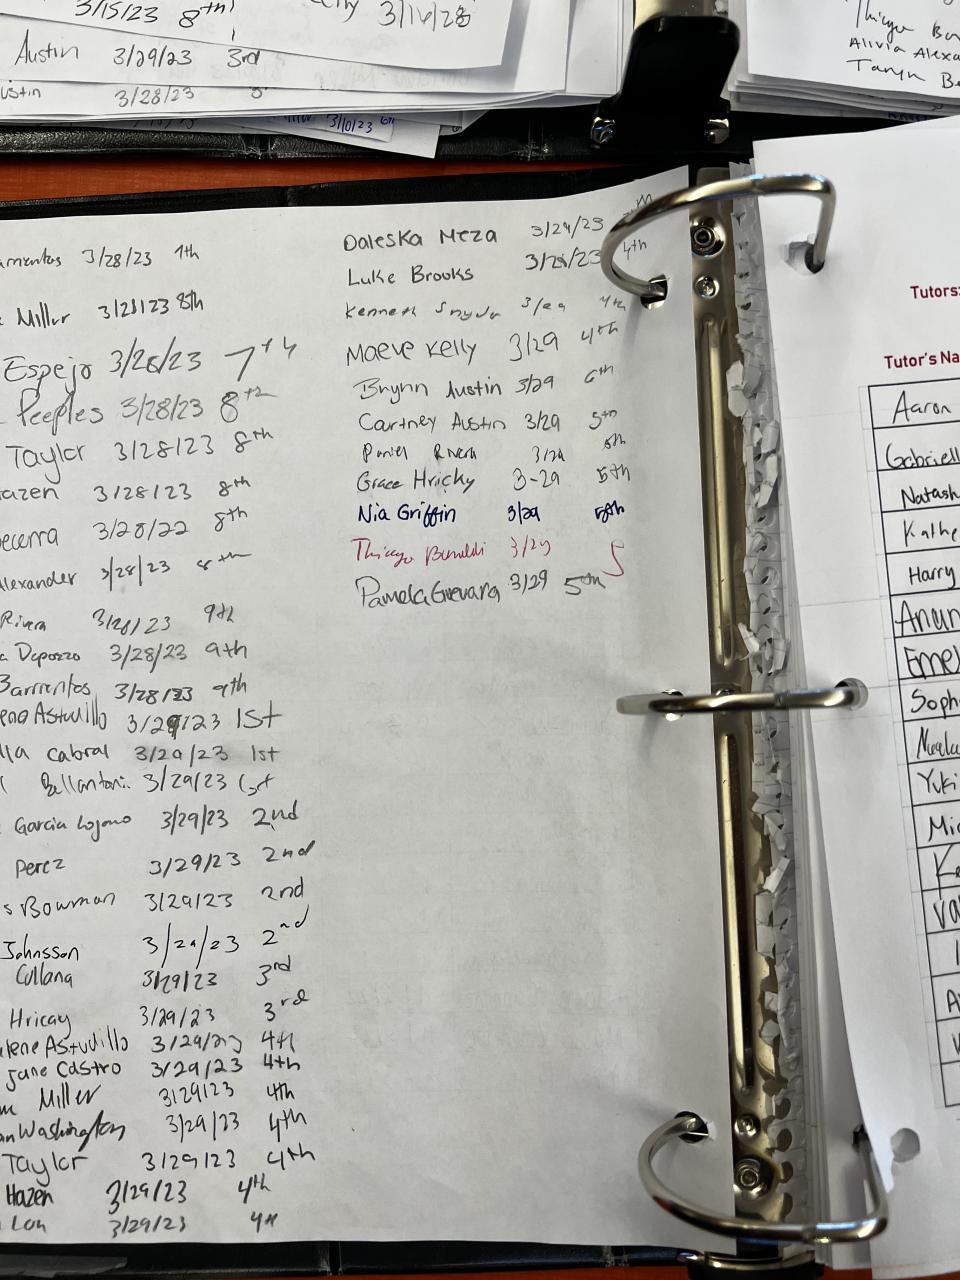 3/15/23 8th
3/16/23
Austin 3/29/23 3rd
ustin 3/28/23
3/10/23 6th
Alivia Alexa
Taryn Be
amentos 3/28/23 9th
Miller 3/28/23 8th
Espejo 3/28/23 7th
Peeples 3/28/23 8th
Taylor 3/28/23 8th
azen 3/28/23 8th
ecerra 3/28/22 8th
Alexander 3/28/23 8th
Rivera 3/28/23 9th
a Depozzo 3/28/23 9th
Barrientos 3/28/23 9th
ena Astudillo 3/29/23 1st
lla Cabral 3/29/23 1st
Bellantoni 3/29/23 1st
Garcia Lozano 3/29/23 2nd
Perez 3/29/23 2nd
s Bowman 3/29/23 2nd
Johnsson 3/29/23 2nd
Collana 3/29/23 3rd
Hricay 3/29/23 3rd
lene Astudillo 3/29/23 4th
Jane Castro 3/29/23 4th
Miller 3/29/23 4th
an Washington 3/29/23 4th
Taylor 3/29/23 4th
Hazen 3/29/23 4th
3/29/23 4th
Daleska Meza 3/29/23
Luke Brooks 3/29/23 4th
Kenneth 3/29 4th
Maeve Kelly 3/29 4th
Brynn Austin 3/29 6th
Cartney Austin 3/29 5th
Daniel Rivera 3/29 5th
Grace Hricky 3-29 5th
Nia Griffin 3/29 5th
3/29 5
Pamela Guevara 3/29 5th
Tutors:
Tutor's Na
Aaron
Gabriell
Natash
Kathe
Harry
Anan
Emel
Soph
Yuki
Mi
Va